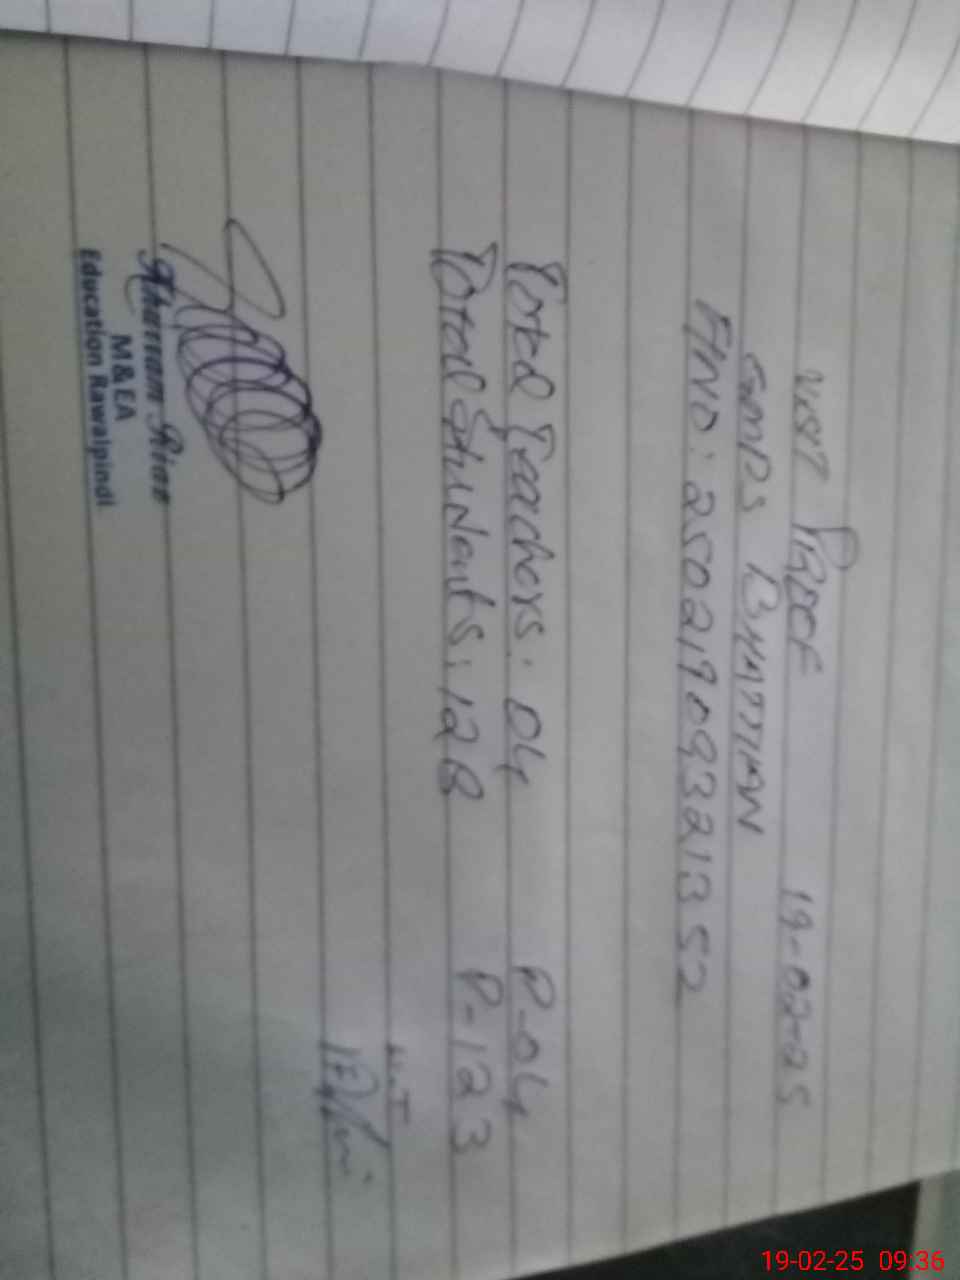 VISIT PROOF 19-02-25
GMPS BHATTIAN
FINO: 250219093213 52
Total Teachers: 04 P-04
Total Students: 128 P-123
H.T
Khurram Riaz
M&EA
Education Rawalpindi
19-02-25 09:36